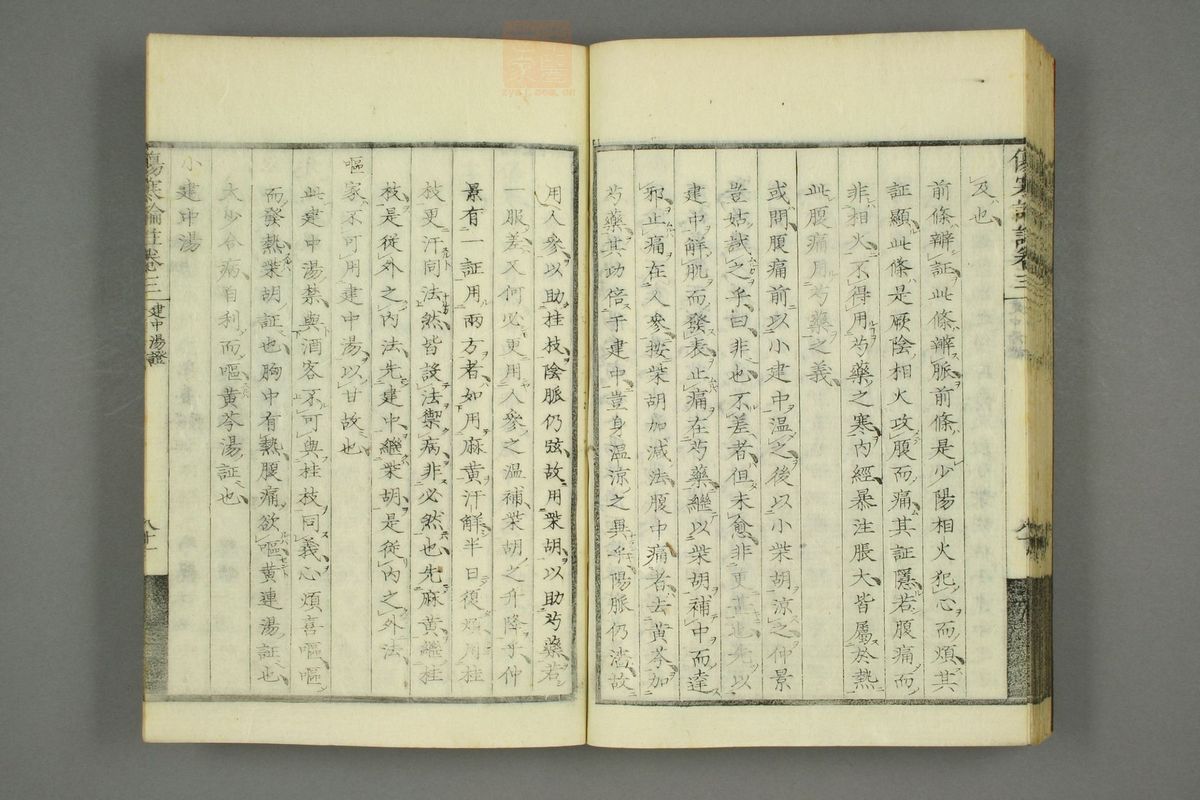 及也
前條辨証此條辨脈前條是少陽相火犯心而煩其
証顯此條是厥陰相火攻腹而痛其証隱若腹痛而
非相火不得用芍藥之寒內經暴注脹大皆屬於熱
此腹痛用芍藥之義
或問腹痛前以小建中温之後以小柴胡涼之仲景
豈姑試之乎曰非也不差者但未愈非更甚也先以
建中解肌而發表止痛在芍藥繼以柴胡補中而達
邪止痛在人參按柴胡加減法腹中痛者去黃芩加
芍藥其功倍于建中豈身温涼之異乎陽脈仍濇故
用人參以助桂枝陰脈仍弦故用柴胡以助芍藥若
一服差又何必更用人參之温補柴胡之升降乎仲
景有一証用兩方者如用麻黃汗解半日復煩用桂
枝更汗同法然皆設法禦病非必然也先麻黃繼桂
枝是從外之內法先建中繼柴胡是從內之外法
嘔家不可用建中湯以甘故也
此建中湯禁與酒客不可與桂枝同義心煩喜嘔嘔
而發熱柴胡証也胸中有熱腹痛欲嘔黃連湯証也
太少合病自利而嘔黃芩湯証也
小建中湯
傷寒論註卷三
建中湯證
八十一